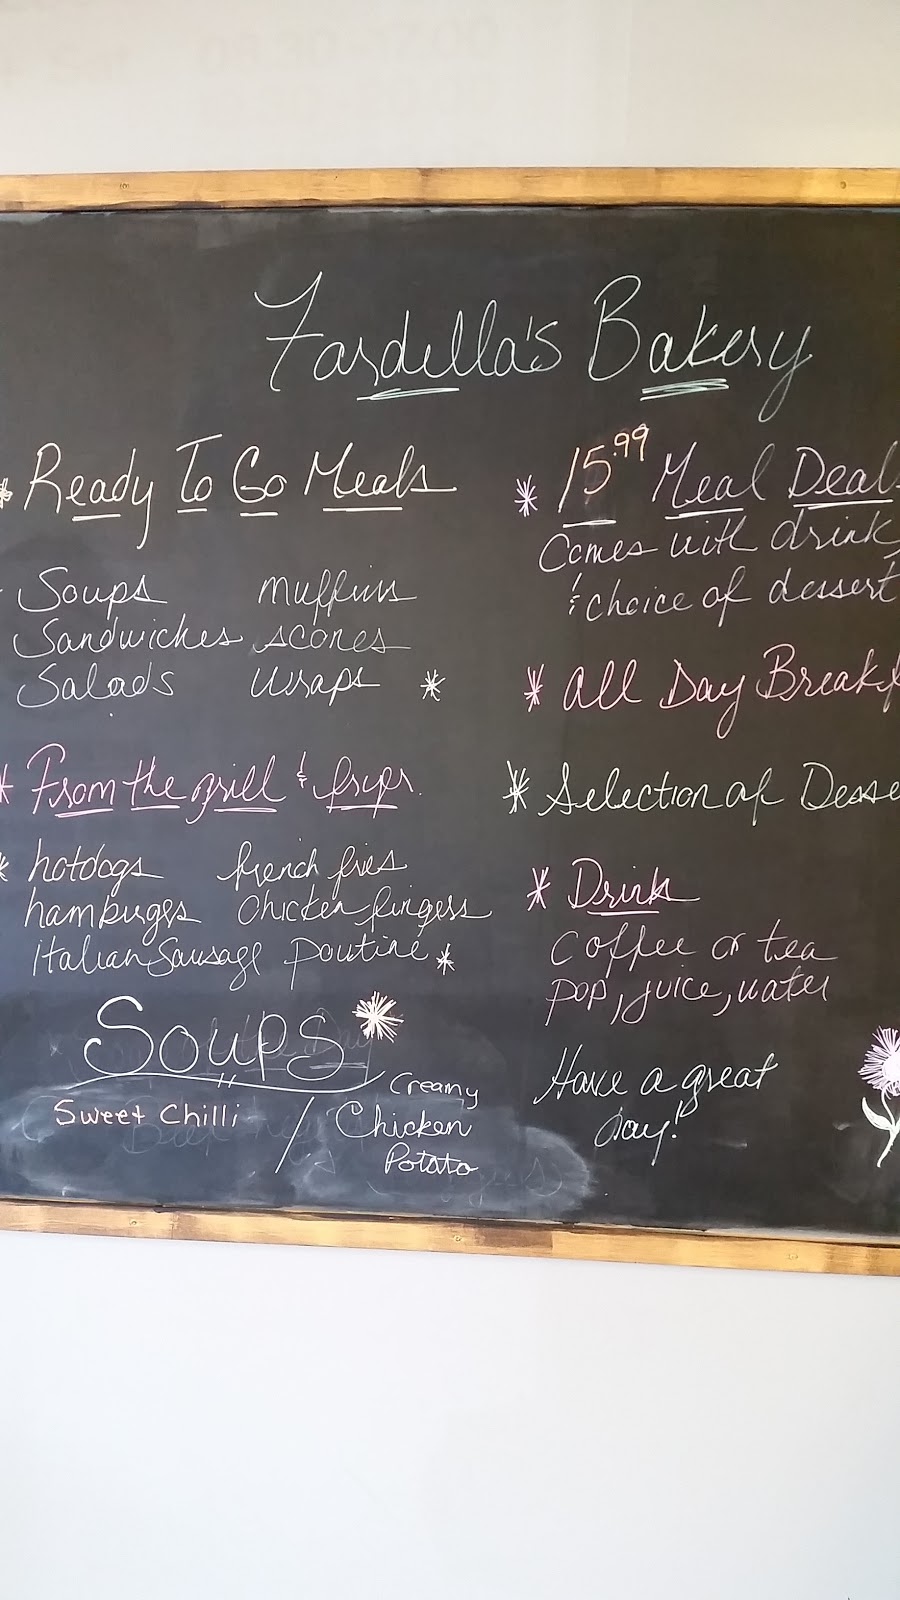 Fardella's Bakery
* Ready To Go Meals
Soups muffins
Sandwiches scones
Salads wraps *
* From the grill & fryer.
* hotdogs french fries
hamburgers chicken fingers
Italian Sausage poutine *
Soups
Sweet Chilli / Creamy
Chicken
Potato
* 15.99 Meal Deal
Comes with drink
& choice of dessert
* All Day Breakf
* Selection of Desse
* Drink
Coffee or tea
pop, juice, water
Have a great
day!